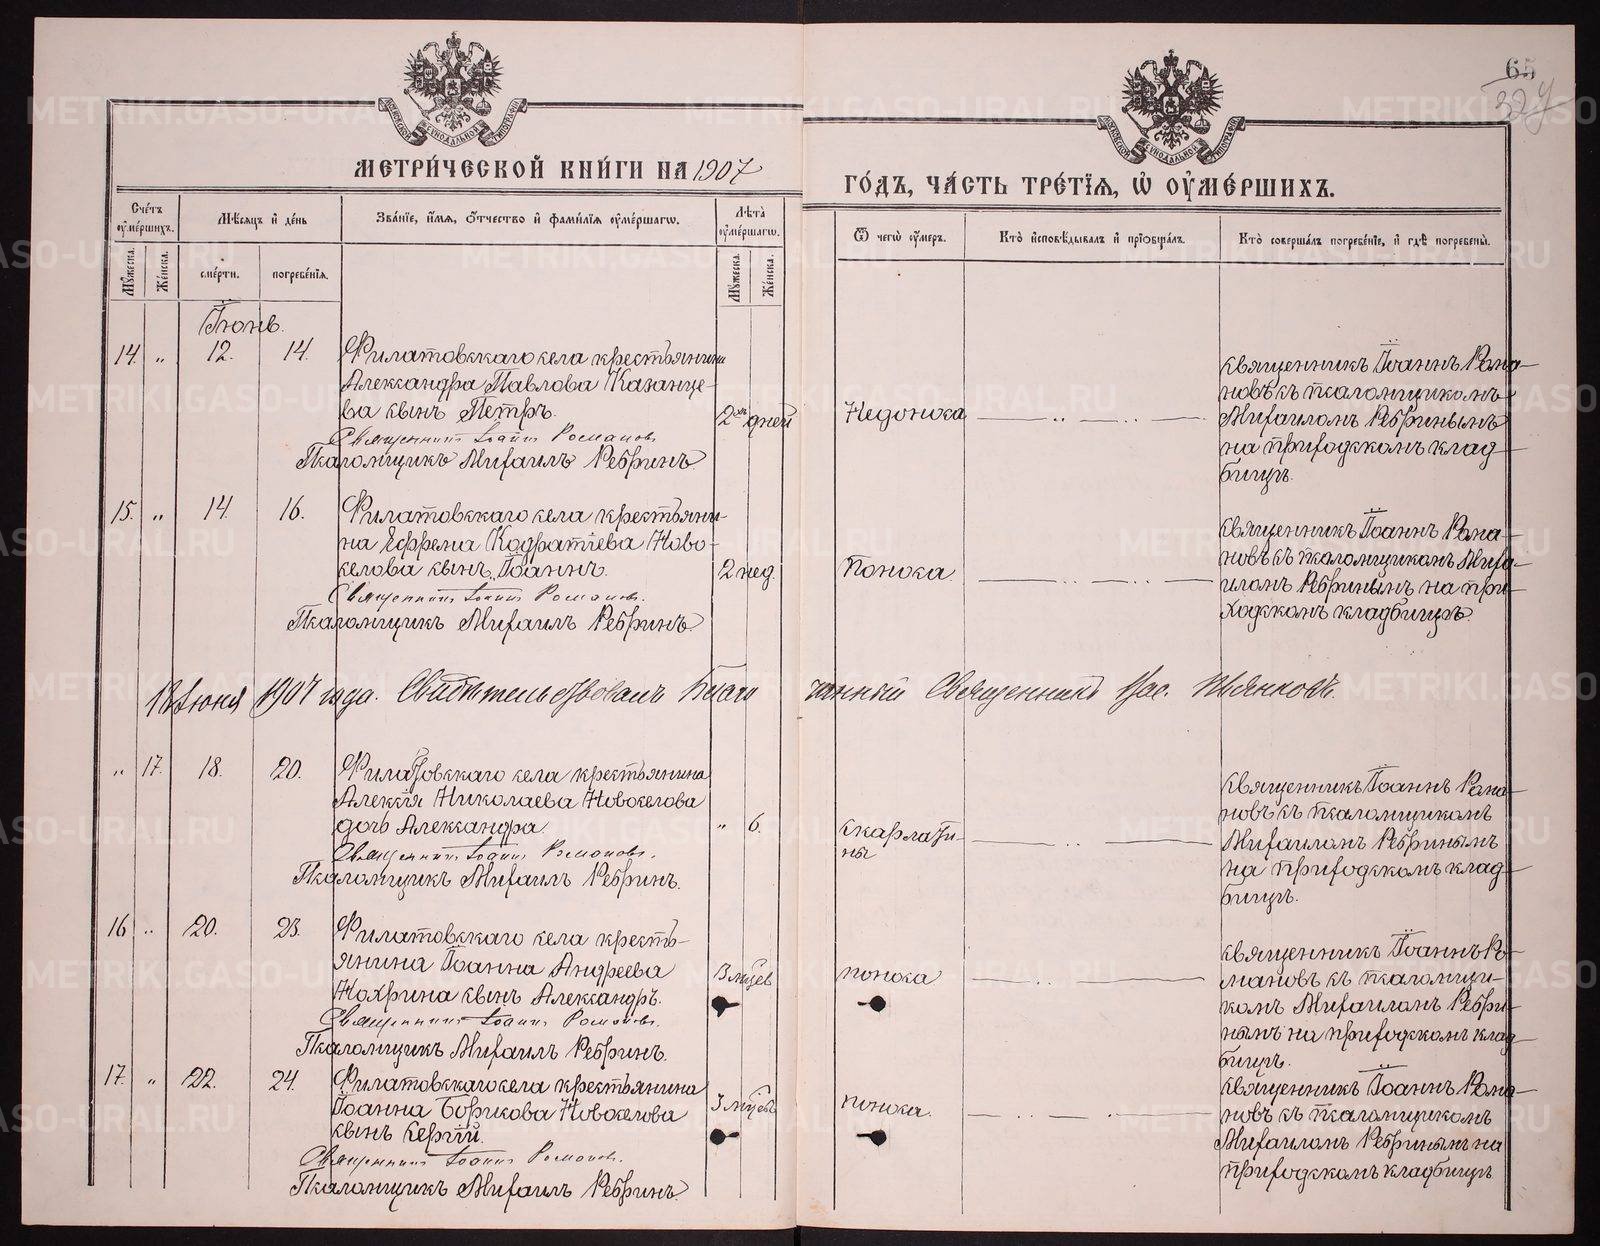 65
327
МОСКОВСКОЙ СѴНОДАЛЬНОЙ ТИПОГРАФІИ
МОСКОВСКОЙ СѴНОДАЛЬНОЙ ТИПОГРАФІИ
МЕТРИ́ЧЕСКОЙ КНИ́ГИ НА 1907
ГО́ДЪ, ЧА́СТЬ ТРЕ́ТІѦ, Ѡ҆ ОУ҆МЕ́РШИХЪ.
Сче́тъ оу҆ме́ршихъ.
Мꙋ́жеска.
Же́нска.
Мѣ́сѧцъ и҆ де́нь
сме́рти.
погребе́нїѧ.
Зва́нїе, и҆́мѧ, ѻ҆́тчество и҆ фами́лїѧ оу҆ме́ршагѡ.
Лѣ̀та оу҆ме́ршагѡ.
Мꙋ́жеска.
Же́нска.
Ѿ чегѡ̀ оу҆́меръ.
Кто̀ и҆сповѣ́дывалъ и҆ прїѡбща́лъ.
Кто̀ соверша́лъ погребе́нїе, и҆ гдѣ̀ погребены̀.
Іюнь.
14. „ 12. 14.
Филатовскаго села крестьянина
Александра Павлова Казанце-
ва сынъ Петръ.
Священникъ Іоаннъ Романовъ
Псаломщикъ Михаилъ Ребринъ.
2хъ дней
Недоноса
священникъ Іоаннъ Рома-
новъ съ псаломщикомъ
Михаиломъ Ребринымъ
на приходскомъ клад-
бищѣ.
15. „ 14. 16.
Филатовскаго села крестьяни-
на Ефрема Кодратіева Ново-
селова сынъ Іоаннъ.
Священникъ Іоаннъ Романовъ.
Псаломщикъ Михаилъ Ребринъ.
2 нед.
Поноса.
священникъ Іоаннъ Рома-
новъ съ псаломщикомъ Миха-
иломъ Ребринымъ на при-
ходскомъ кладбищѣ.
18 Іюня 1907 года. Свидѣтельствовалъ Благо чинный Священникъ
„ 17. 18. 20.
Филатовскаго села крестьянина
Алексія Николаева Новоселова
дочь Александра.
Священникъ Іоаннъ Романовъ.
Псаломщикъ Михаилъ Ребринъ.
„ 6.
скарлати-
ны
священникъ Іоаннъ Рома-
новъ съ псаломщикомъ
Михаиломъ Ребринымъ
на приходскомъ клад-
бищѣ.
16 „ 20. 23.
Филатовскаго села кресть-
янина Іоанна Андреева
Нохрина сынъ Александръ.
Священникъ Іоаннъ Романовъ.
Псаломщикъ Михаилъ Ребринъ.
3 мцѣв
поноса
священникъ Іоаннъ Ро-
мановъ съ псаломщи-
комъ Михаиломъ Ребри-
нымъ на приходскомъ клад-
бищѣ.
17. „ 22. 24.
Филатовскаго села крестьянина
Іоанна Борисова Новоселова
сынъ Сергій.
Священникъ Іоаннъ Романовъ.
Псаломщикъ Михаилъ Ребринъ.
3 мцѣв
поноса.
священникъ Іоаннъ Рома-
новъ съ псаломщикомъ
Михаиломъ Ребринымъ на
приходскомъ кладбищѣ
METRIKI.GASO-URAL.RU